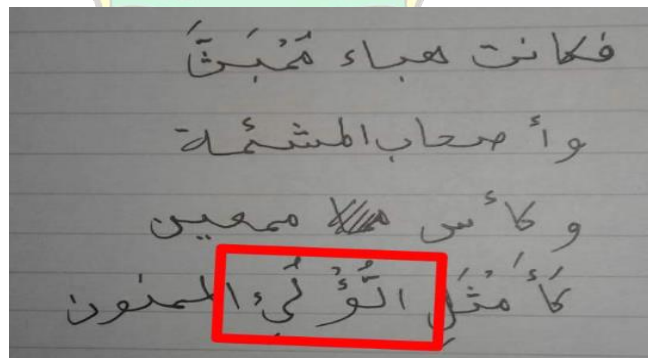 فكانت هباء مُمْبَثَّ
وأصحاب المشئمة
وكأس ممعين
كَأَمْثَلِ الُّؤْلُيءِ الممنون